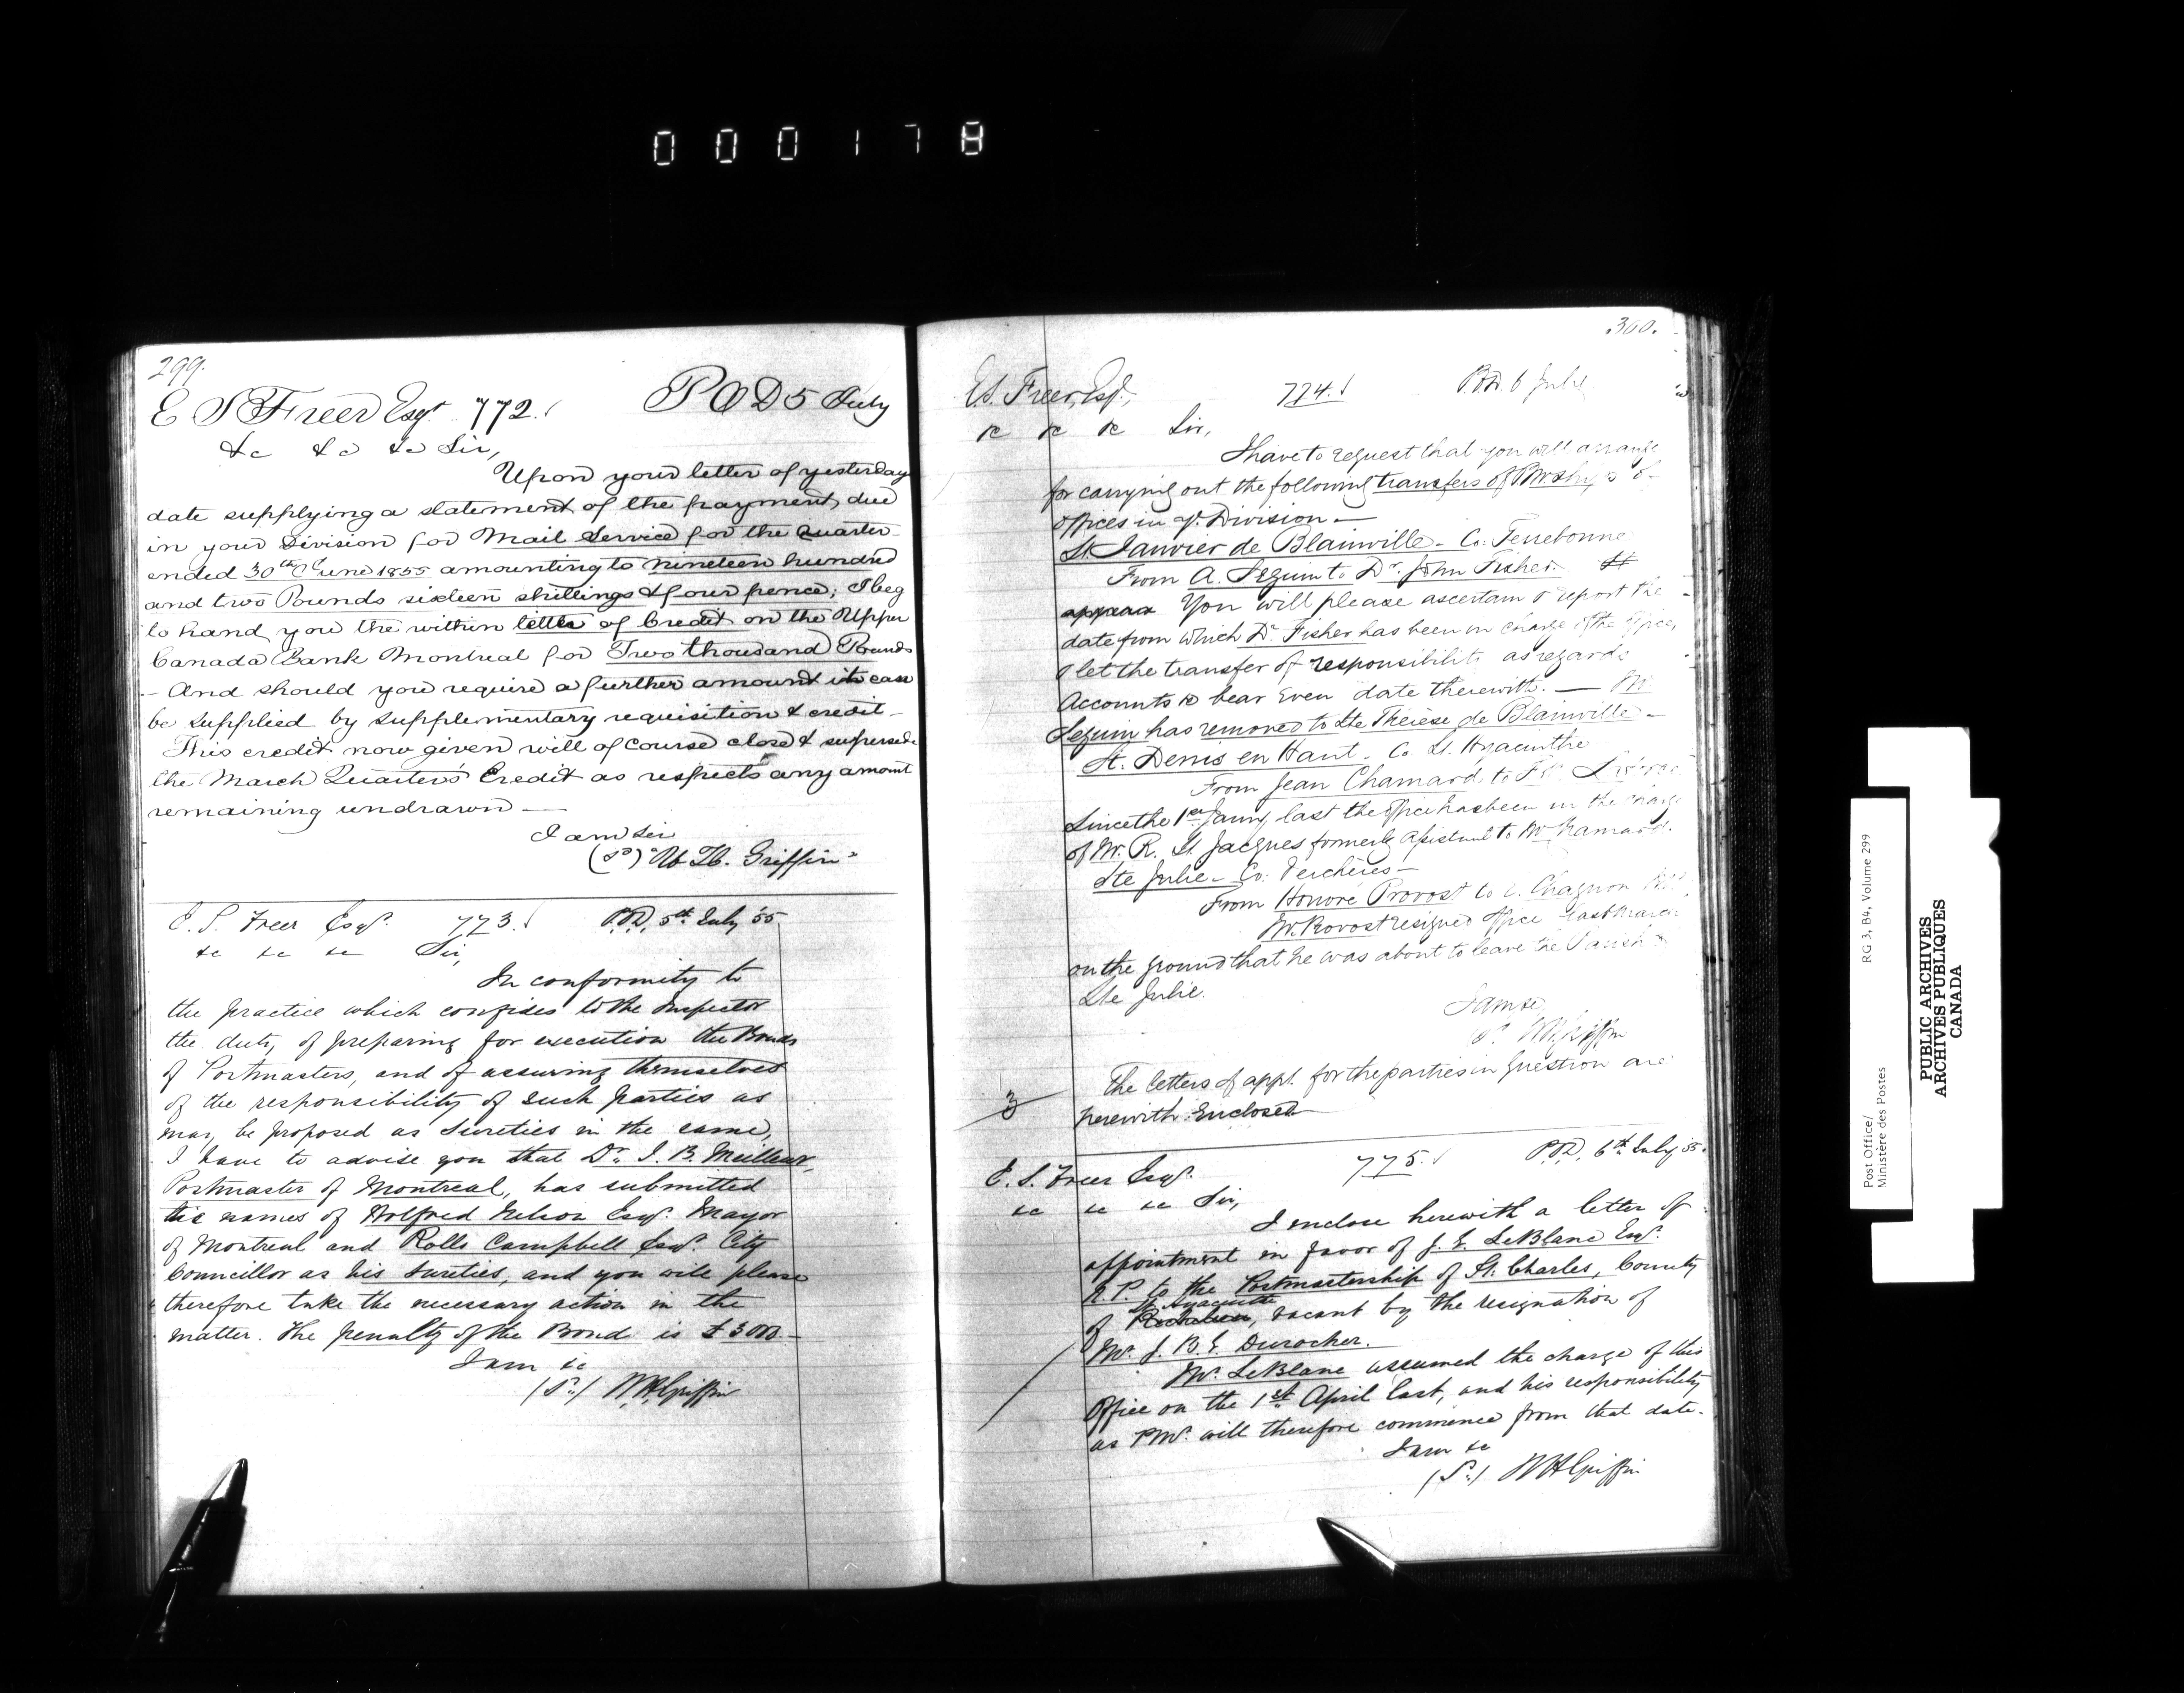 000178
299.
E S Freer Esqr 772. P O D 5 July
&c &c &c Sir,
Upon your letter of yesterday
date supplying a statement of the payment due
in your Division for Mail Service for the Quarter
ended 30th June 1855 amounting to nineteen hundred
and two Pounds sixteen shillings & four pence; I beg
to hand you the within letter of Credit on the Upper
Canada Bank Montreal for Two thousand Pounds
- And should you require a further amount it can
be supplied by supplementary requisition & credit -
This credit now given will of course close & supersede
the March Quarter's Credit as respects any amount
remaining undrawn —
I am Sir
(sd) "W. H. Griffin"
E. S. Freer Esqr. 773. P.O.D, 5th July '55
&c &c &c Sir,
In conformity to
the practice which confides to the Inspector
the duty of preparing for execution the Bonds
of Postmasters, and of assuring themselves
of the responsibility of such parties as
may be proposed as Sureties in the same,
I have to advise you that Dr. J. B. Meilleur,
Postmaster of Montreal, has submitted
the names of Wolfred Nelson Esqr. Mayor
of Montreal and Rollo Campbell Esqr. City
Councillor as his Sureties, and you will please
therefore take the necessary action in the
matter. The penalty of the Bond is £3000 -
I am &c
(Sd.) W.H. Griffin
300.
E.S. Freer, Esqr., 774. P.O.D. 6 July
&c &c &c Sir,
I have to request that you will arrange
for carrying out the following transfers of Pmships of
offices in yr. Division —
St. Janvier de Blainville - Co. Terrebonne
From A. Seguin to Dr. John Fisher. It
appears You will please ascertain & report the
date from which Dr. Fisher has been in charge of the office,
& let the transfer of responsibility as regards
Accounts to bear even date therewith. — Mr
Seguin has removed to Ste Thérèse de Blainville -
St. Denis en Haut. Co. St. Hyacinthe
From Jean Chamard to
Since the 1st Janry last the office has been in the charge
of Mr. R. St. Jacques formerly Assistant to Mr Chamard.
Ste Julie - Co: Verchères -
From Honoré Provost to Chagnon
Mr. Provost resigned office last March
on the ground that he was about to leave the Parish of
Ste Julie.
I am &c
Sd. W.H. Griffin
The letters of appt. for the parties in question are
3 herewith enclosed
E. S. Freer Esqr. 775. P.O.D, 6th July 55.
&c &c &c Sir,
I enclose herewith a letter of
appointment in favor of J. E. LeBlanc Esqr.
N.P. to the Postmastership of St. Charles, County
St. Hyacinthe
of Richelieu, vacant by the resignation of
Mr. J. B. E. Durocher.
Mr. LeBlanc assumed the charge of this
Office on the 1st April last, and his responsibility
as P.Mr. will therefore commence from that date.
I am &c
(Sd.) W H Griffin
Post Office/
Ministère des Postes
RG 3, B4, Volume 299
PUBLIC ARCHIVES
ARCHIVES PUBLIQUES
CANADA